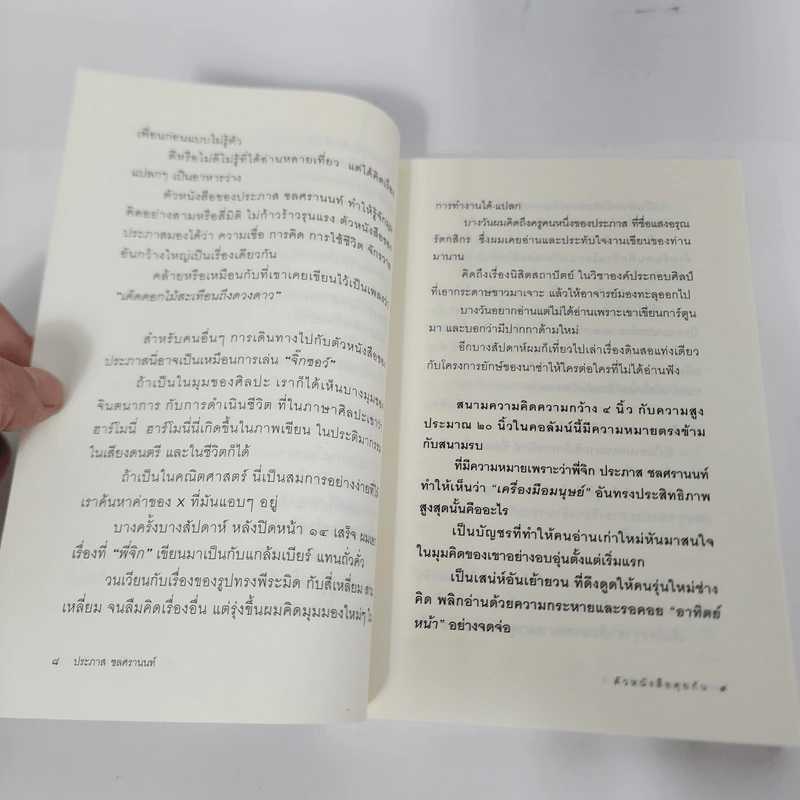 เพื่อนก่อนแบบไม่รู้ตัว
ดีหรือไม่ดีไม่รู้ที่ได้อ่านหลายเที่ยว แต่ได้คิดเรื่อง
แปลกๆ เป็นอาหารว่าง
ตัวหนังสือของประภาส ชลศรานนท์ ทำให้รู้จัก
คิดอย่างสามหรือสี่มิติ ไม่ก้าวร้าวรุนแรง ตัวหนังสือของ
ประภาสมองได้ว่า ความเชื่อ การคิด การใช้ชีวิต จักรวาล
อันกว้างใหญ่เป็นเรื่องเดียวกัน
คล้ายหรือเหมือนกับที่เขาเคยเขียนไว้เป็นเพลงว่า
“เด็ดดอกไม้สะเทือนถึงดวงดาว”
สำหรับคนอื่นๆ การเดินทางไปกับตัวหนังสือของ
ประภาสนี่อาจเป็นเหมือนการเล่น “จิ๊กซอว์”
ถ้าเป็นในมุมของศิลปะ เราก็ได้เห็นบางมุมของ
จินตนาการ กับการดำเนินชีวิต ที่ในภาษาศิลปะเขาว่า
ฮาร์โมนี่ ฮาร์โมนี่นี่เกิดขึ้นในภาพเขียน ในประติมากรรม
ในเสียงดนตรี และในชีวิตก็ได้
ถ้าเป็นในคณิตศาสตร์ นี่เป็นสมการอย่างง่ายที่ให้
เราค้นหาค่าของ X ที่มันแอบๆ อยู่
บางครั้งบางสัปดาห์ หลังปิดหน้า ๑๔ เสร็จ ผมเอา
เรื่องที่ “พี่จิก” เขียนมาเป็นกับแกล้มเบียร์ แทนถั่วคั่ว
วนเวียนกับเรื่องของรูปทรงพีระมิด กับสี่เหลี่ยม สาม
เหลี่ยม จนลืมคิดเรื่องอื่น แต่รุ่งขึ้นผมคิดมุมมองใหม่ๆ ใน
๘ ประภาส ชลศรานนท์
การทำงานได้-แปลก
บางวันผมคิดถึงครูคนหนึ่งของประภาส ที่ชื่อแสงอรุณ
รัตกสิกร ซึ่งผมเคยอ่านและประทับใจงานเขียนของท่าน
มานาน
คิดถึงเรื่องนิสิตสถาปัตย์ ในวิชาองค์ประกอบศิลป์
ที่เอากระดาษขาวมาเจาะ แล้วให้อาจารย์มองทะลุออกไป
บางวันอยากอ่านแต่ไม่ได้อ่านเพราะเขาเขียนการ์ตูน
มา และบอกว่ามีปากกาด้ามใหม่
อีกบางสัปดาห์ผมก็เที่ยวไปเล่าเรื่องดินสอแท่งเดียว
กับโครงการยักษ์ของนาซ่าให้ใครต่อใครที่ไม่ได้อ่านฟัง
สนามความคิดความกว้าง ๔ นิ้ว กับความสูง
ประมาณ ๒๐ นิ้วในคอลัมน์นี้มีความหมายตรงข้าม
กับสนามรบ
ที่มีความหมายเพราะว่าพี่จิก ประภาส ชลศรานนท์
ทำให้เห็นว่า “เครื่องมือมนุษย์” อันทรงประสิทธิภาพ
สูงสุดนั้นคืออะไร
เป็นบัญชรที่ทำให้คนอ่านเก่าใหม่หันมาสนใจ
ในมุมคิดของเขาอย่างอบอุ่นตั้งแต่เริ่มแรก
เป็นเสน่ห์อันเย้ายวน ที่ดึงดูดให้คนรุ่นใหม่ช่าง
คิด พลิกอ่านด้วยความกระหายและรอคอย “อาทิตย์
หน้า” อย่างจดจ่อ
ตัวหนังสือคุยกัน ๙